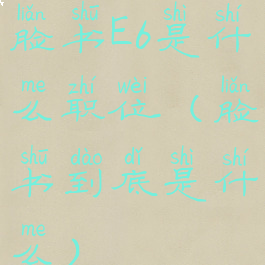 liǎn shū shì shí
脸书E6是什
me zhí wèi liǎn
么职位(脸
shū dào dǐ shì shí
书到底是什
me
么)